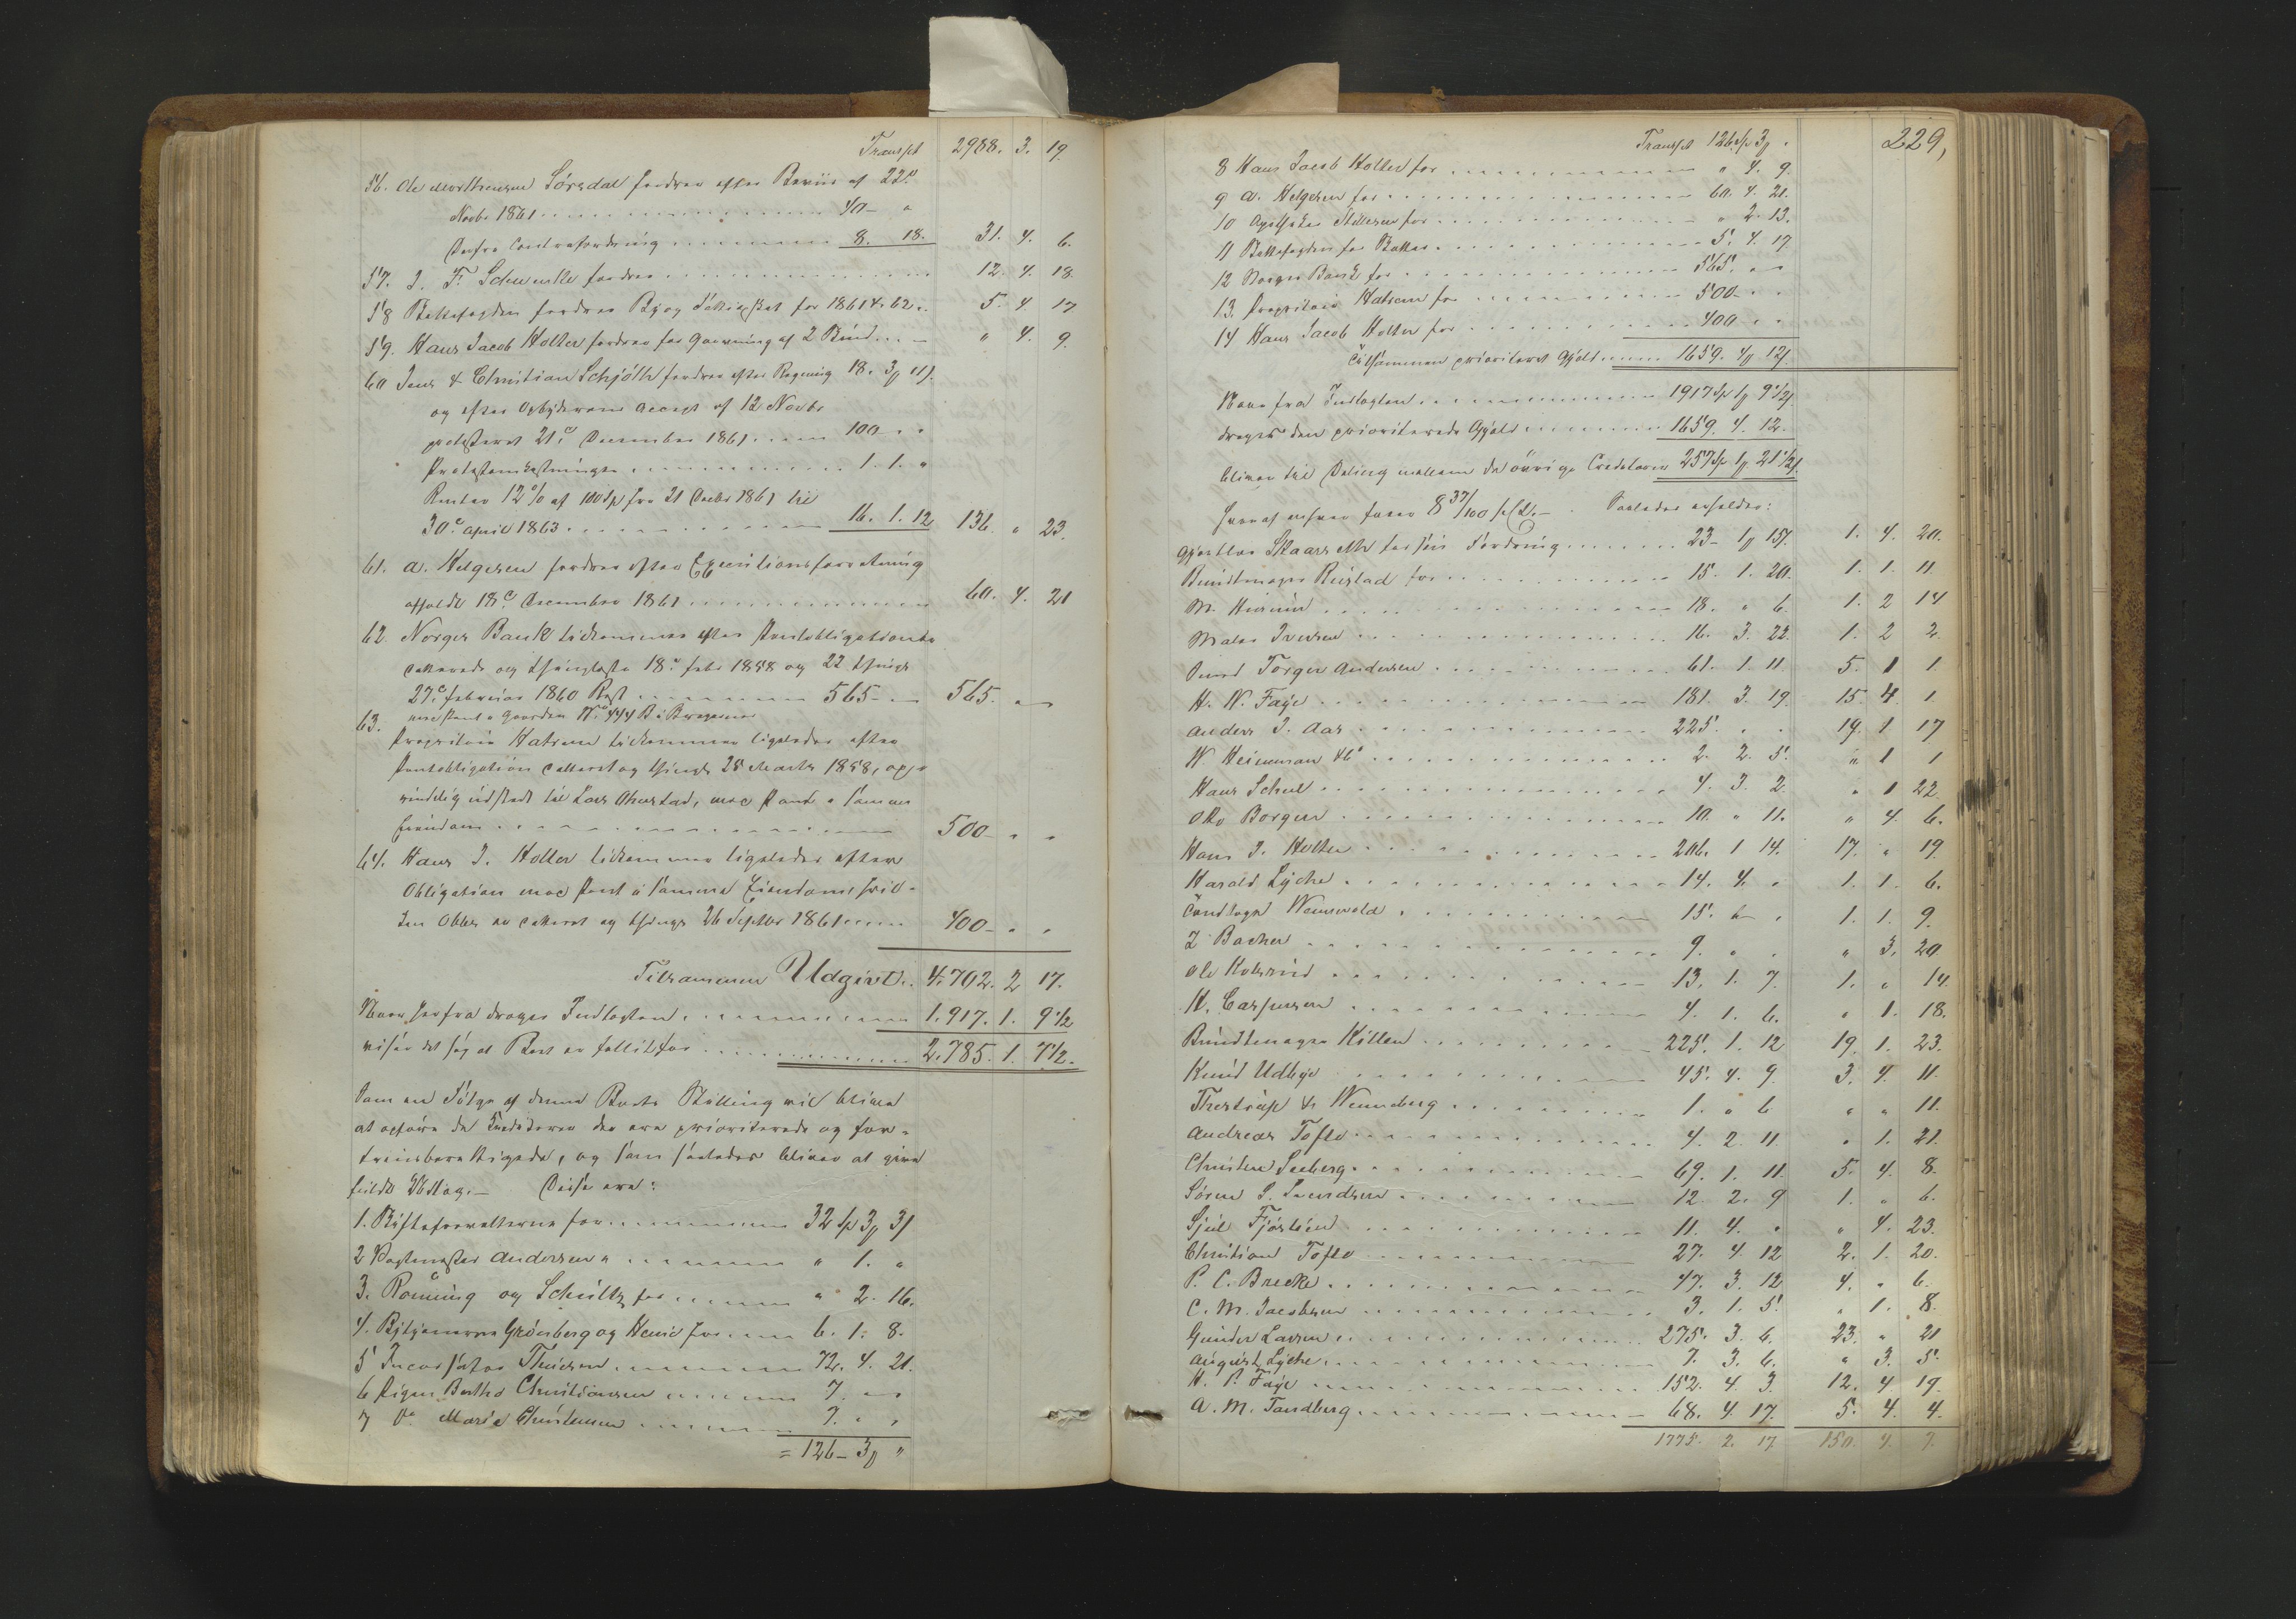 Transpt 2988. 3. 19.
56. Ole Mortensen Sørsdal fordrer efter Beviis af 22d
Novbr 1861 40 – "
Derfra Contrafordring 8. 18. 31. 4. 6.
57. J. F. Schwenke fordrer 12. 4. 18.
58 fordrer By og skat for 1861 & 62 5. 4 17
59. Hans Jacob Holter fordrer for af 2 " 4. 9.
60 Jens & Christian Schjøth fordrer efter Regning 18. 3 11
og efter accept af 12 Novbr
protesteret 21d December 1861 100 " "
1. 1. "
Renter 12 % af 100 Sp fra 21 Decbr 1861 til
30d April 1863 16. 1. 12 136. " 23.
61. A. Helgesen fordrer efter Executionsforretning
afholdt 18d December 1861 60. 4. 21
62. Norges Bank tilkommer efter Pantobligationer
daterede og thinglæste 18d Febr 1858 og 22
27d Februar 1860 Rest 565 – " 565. " –
med Pant i Gaarden No 444 B i Bragernes
63. Proprietair Katrum tilkommer ligeledes efter
Pantobligation dateret og 25 Marts 1858, op-
rindelig udstedt til Lars Ohustad, med Pant i samme
Eiendom 500 – " "
64. Hans J. Holter tilkommer ligeledes efter
Obligation med Pant i samme Eiendom,
er dateret og 26 Septbr 1861 400 – " "
Tilsammen Udgivt. 4.702. 2 17.
Naar herfra drages Indtægten 1.917. 1. 9 1/2
viser det sig at Boet er fallit for 2.785. 1. 7 1/2.
Som en Følge af denne Boets Stilling vil blive
at opføre de Creditorer der ere prioriterede og for-
trinsberettigede, og som saaledes bliver at give
fuldt Udlæg. – Disse ere:
1. Skifteforvalteren for 32 Sp 3 3
2 Andersen " " 1. "
3. Rønning og Schultz for " 2. 16.
4. Grønberg og for 6. 1. 8.
5 Thuesen 72. 4. 21.
6 Pigen Berthe Christiansen 7. " "
7 Do Marie Christensen 7. " "
= 126 – 3 "
229,
Transpt 126 Sp 3 "
8 Hans Jacob Holter for " 4. 9.
9 A. Helgesen for 60. 4. 21.
10 Apotheker for " 2. 13.
11 for 5. 4. 17
12 Norges Bank for 565. " –
13. Proprietair Katrum for 500 – " "
14 Hans Jacob Holter for 400 " "
Tilsammen prioriteret Gjæld 1659. 4 12
Naar fra Indtægten 1917 Sp 1 9 1/2
drages den prioriterede Gjæld 1659. 4. 12.
bliver til Deling mellem de øvrige Creditorer 257 Sp 1 21 1/2
hvoraf enhver faaer 8 37/100 pCt. – Saaledes erholder:
Gjørtler Skaarseth for sin Fordring 23 – 1 15. 1. 4. 20.
Bundtmager Rustad for 15. 1. 20. 1. 1. 11.
M. 18. " 6. 1. 2 14
Maler Iversen 16. 3. 22. 1. 2 2.
Torger Andersen 61. 1. 11. 5. 1 1.
H. N. Faye 181. 3. 19. 15. 4 1.
Anders J. Aas 225. " " 19. 1 17
W. Heinman & Co 2. 2. 5. " 1 1
Hans Schul 4. 3. 2. " 1 22.
Otto Borgen 10. " 11. " 4. 6.
Hans J. Holter 206. 1 14. 17. " 19.
Harald Lyche 14. 4. " 1. 1. 6.
Wennevold 15. " 1. 1. 9.
J Bacher 9. " . " 3. 20
Ole Kolsrud 13. 1. 7. 1. " 14.
H. Caspersen 4. 1. 6. " 1. 18.
Bundtmager Kittler 225. 1. 12 19. 1. 23.
Knud Udbye 45. 4. 9. 3. 4. 11.
Thestrup & Wenneberg 1. " 6 " " 11.
Andreas Tofte 4. 2. 11 " 1. 21.
Christen Seeberg 69. 1. 11. 5. 4. 8.
Søren S. Svendsen 12. 2. 9 1. " 6.
Sjul Fjøsteen 11. 4. " " 4. 23.
Christian Tofte 27. 4 12 2. 1. 20.
P. C. Brecke 47. 3. 12 4. " 6.
C. M. Jacobsen 3. 1. 5. " 1. 8.
Gunder Larsen 275. 3. 6. 23. " 21
August Lyche 7. 3. 6. " 3. 5.
H. P. Faye 152. 4. 3. 12. 4 19.
A. M. Tandberg 68. 4. 17. 5. 4. 4.
1775. 2. 17 150. 4. 7.